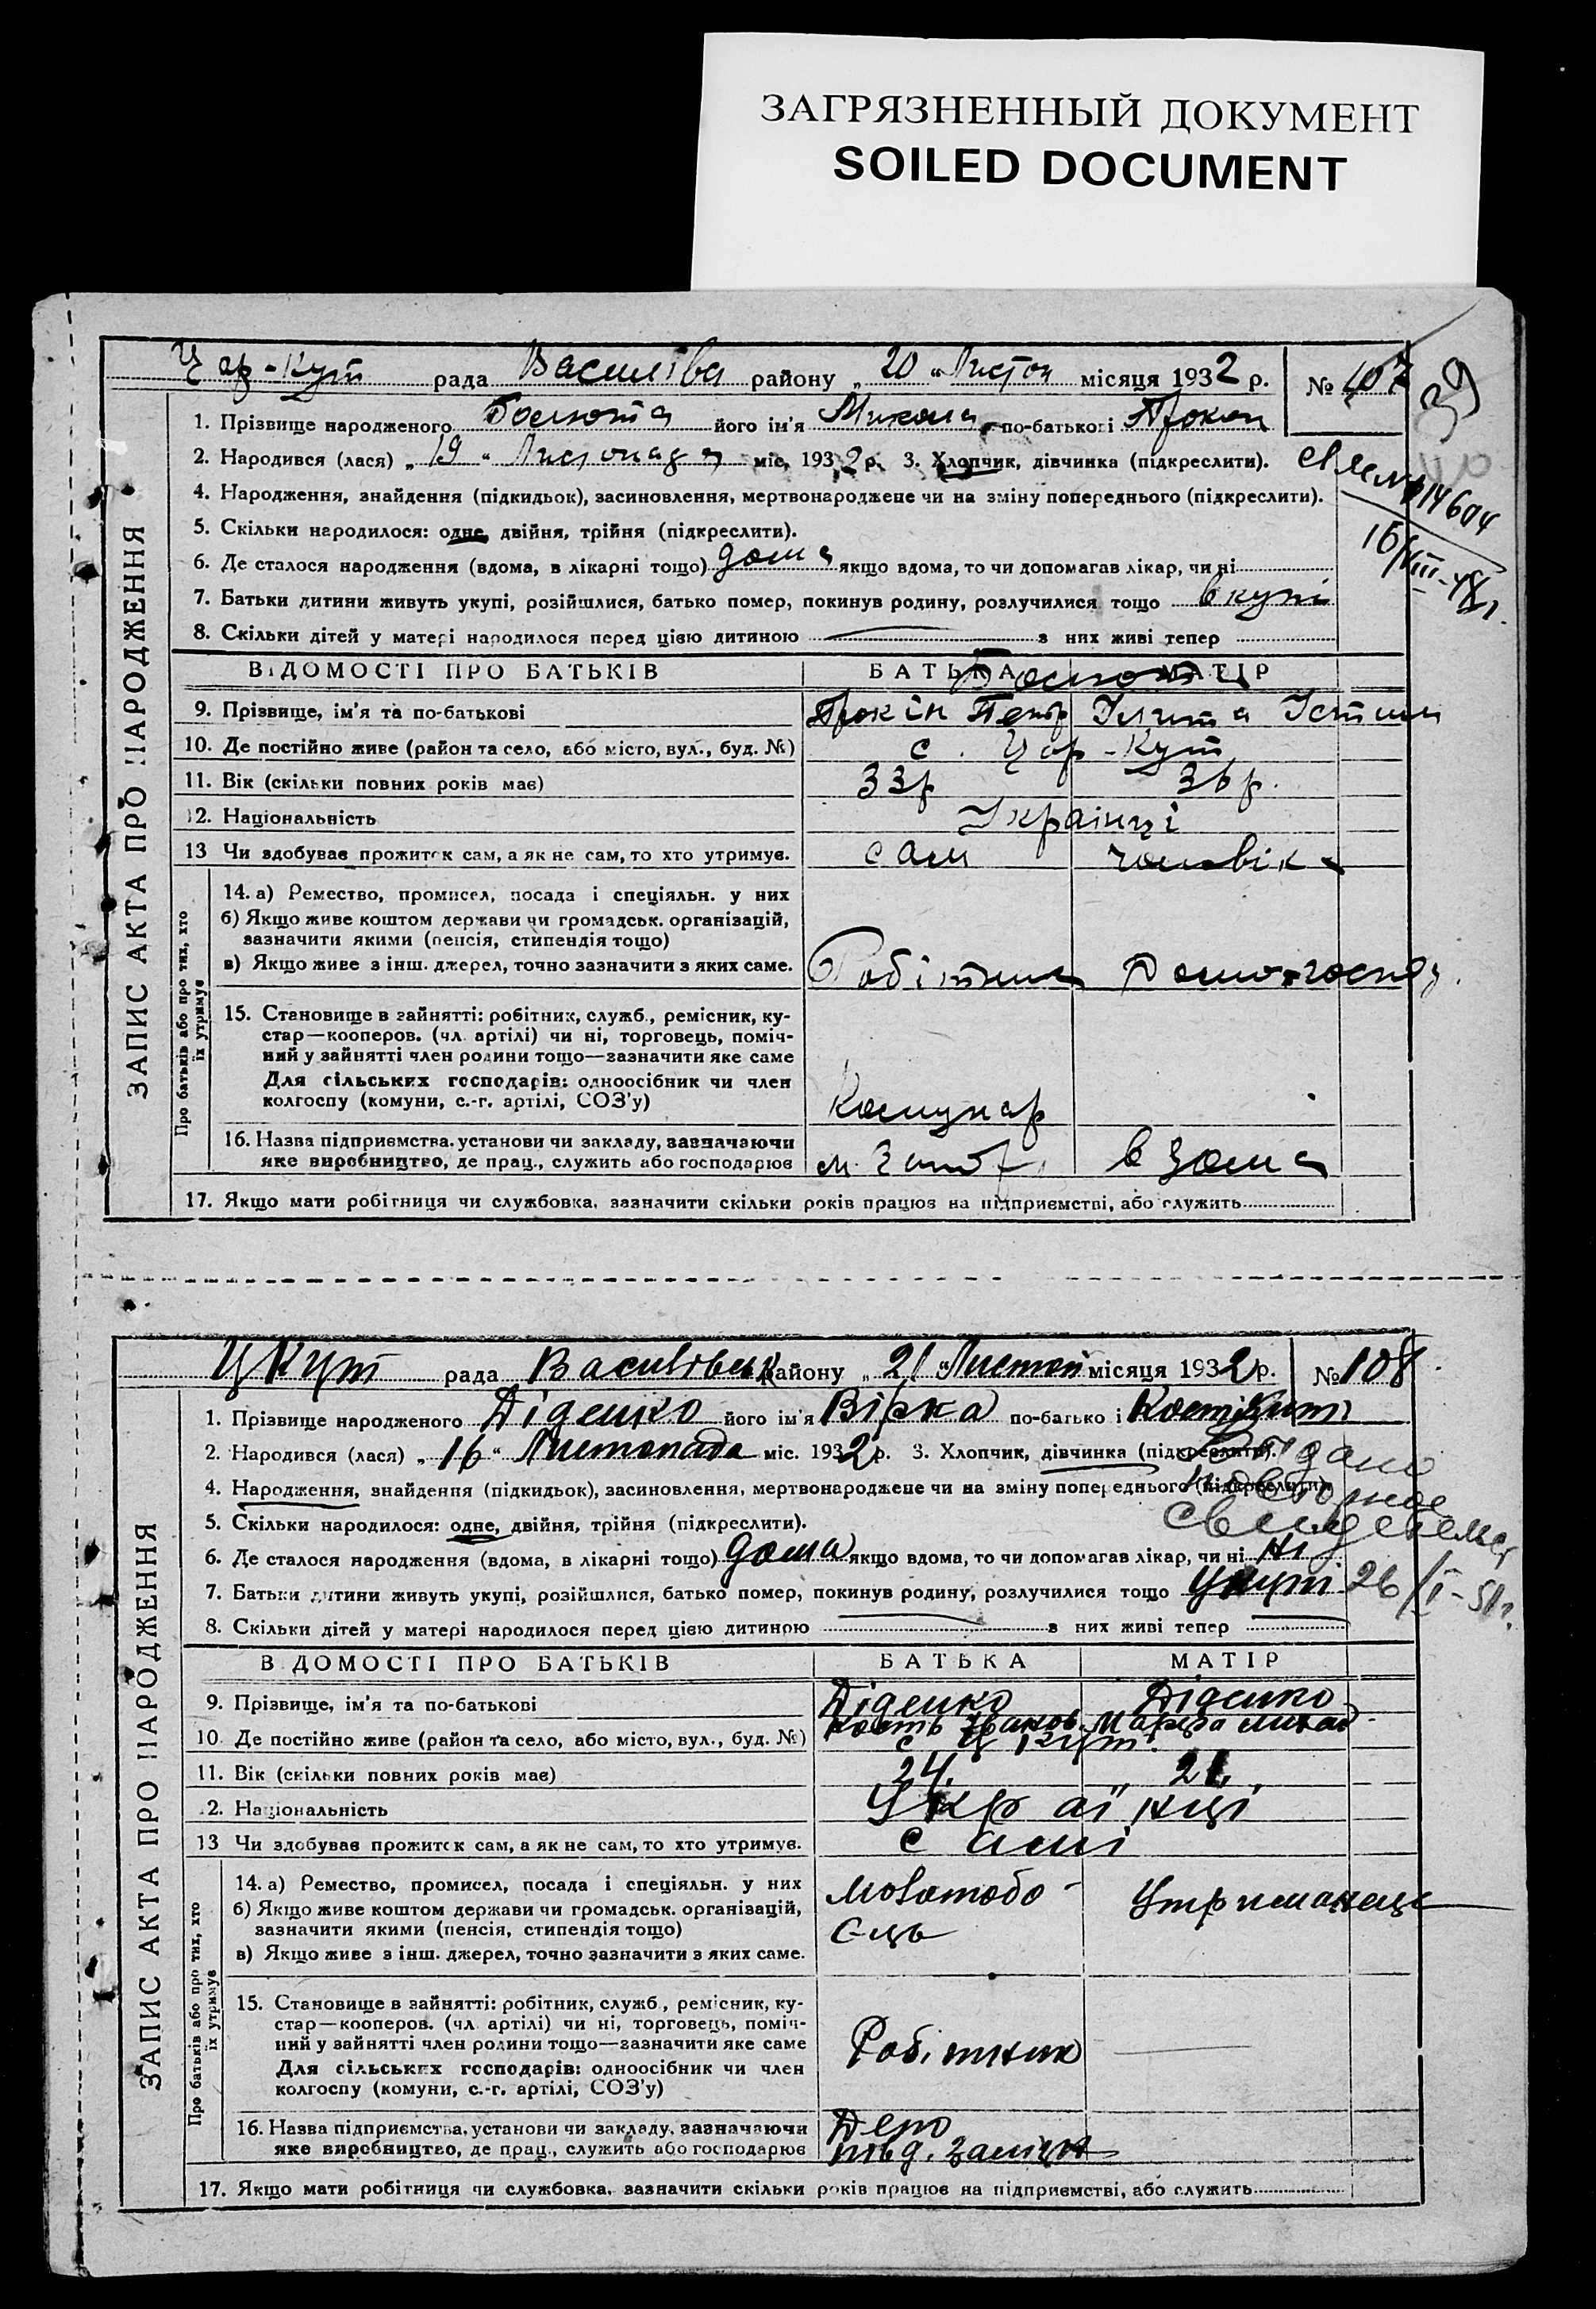 ЗАГРЯЗНЕННЫЙ ДОКУМЕНТ
SOILED DOCUMENT
39
ЗАПИС АКТА ПРО НАРОДЖЕННЯ
Цар-Кут рада Василівс району „20“ Листоп місяця 1932 р. № 107
1. Прізвище народженого його ім'я Микола по-батькові Прокоп
2. Народився (лася) „19“ Листопада міс. 1932 р. 3. Хлопчик, дівчинка (підкреслити).
4. Народження, знайдення (підкидьок), засиновлення, мертвонароджене чи на зміну попереднього (підкреслити).
5. Скільки народилося: одне, двійня, трійня (підкреслити).
6. Де сталося народження (вдома, в лікарні тощо) дома якщо вдома, то чи допомагав лікар, чи ні
7. Батьки дитини живуть укупі, розійшлися, батько помер, покинув родину, розлучилися тощо вкупі
8. Скільки дітей у матері народилося перед цією дитиною — з них живі тепер
14604
15/VIII-48 г.
ВІДОМОСТІ ПРО БАТЬКІВ БАТЬКА МАТІР
9. Прізвище, ім'я та по-батькові
10. Де постійно живе (район та село, або місто, вул., буд. №) с. Цар-Кут
11. Вік (скільки повних років має) 33 р 36 р.
12. Національність Українці
13 Чи здобуває прожиток сам, а як не сам, то хто утримує. сам чоловік
Про батьків або про тих, хто їх утримує
14. а) Ремество, промисел, посада і спеціяльн. у них
б) Якщо живе коштом держави чи громадськ. організацій,
зазначити якими (пенсія, стипендія тощо)
в) Якщо живе з інш. джерел, точно зазначити з яких саме. Робітник
15. Становище в зайнятті: робітник, служб., ремісник, ку-
стар—кооперов. (чл. артілі) чи ні, торговець, поміч-
ний у зайнятті член родини тощо—зазначити яке саме
Для сільських господарів: одноосібник чи член
колгоспу (комуни, с.-г. артілі, СОЗ'у) Комунар
16. Назва підприємства, установи чи закладу, зазначаючи
яке виробництво, де прац., служить або господарює в дома
17. Якщо мати робітниця чи службовка, зазначити скільки років працює на підприємстві, або служить
ЗАПИС АКТА ПРО НАРОДЖЕННЯ
Ц Кут рада Василівськ району „21“ Листоп місяця 1932 р. № 108
1. Прізвище народженого Діденко його ім'я Вірка по-батькові
2. Народився (лася) „16“ Листопада міс. 1932 р. 3. Хлопчик, дівчинка (підкреслити).
4. Народження, знайдення (підкидьок), засиновлення, мертвонароджене чи на зміну попереднього (підкреслити)
5. Скільки народилося: одне, двійня, трійня (підкреслити).
6. Де сталося народження (вдома, в лікарні тощо) дома якщо вдома, то чи допомагав лікар, чи ні ні
7. Батьки дитини живуть укупі, розійшлися, батько помер, покинув родину, розлучилися тощо укупі
8. Скільки дітей у матері народилося перед цією дитиною — з них живі тепер —
Видано
повторное
свидетель
26/I-51 г.
ВІДОМОСТІ ПРО БАТЬКІВ БАТЬКА МАТІР
9. Прізвище, ім'я та по-батькові Діденко Діденко
Кость Іванов. Марфа Михай
10. Де постійно живе (район та село, або місто, вул., буд. №) с Ц Кут.
11. Вік (скільки повних років має) 24. 21.
12. Національність Українці
13 Чи здобуває прожиток сам, а як не сам, то хто утримує. самі
Про батьків або про тих, хто їх утримує
14. а) Ремество, промисел, посада і спеціяльн. у них Молотобо-
б) Якщо живе коштом держави чи громадськ. організацій,
зазначити якими (пенсія, стипендія тощо) єць
в) Якщо живе з інш. джерел, точно зазначити з яких саме.
15. Становище в зайнятті: робітник, служб., ремісник, ку-
стар—кооперов. (чл. артілі) чи ні, торговець, поміч-
ний у зайнятті член родини тощо—зазначити яке саме Робітник —
Для сільських господарів: одноосібник чи член
колгоспу (комуни, с.-г. артілі, СОЗ'у)
16. Назва підприємства, установи чи закладу, зазначаючи Депо
яке виробництво, де прац., служить або господарює півд. залізн
17. Якщо мати робітниця чи службовка, зазначити скільки років працює на підприємстві, або служить